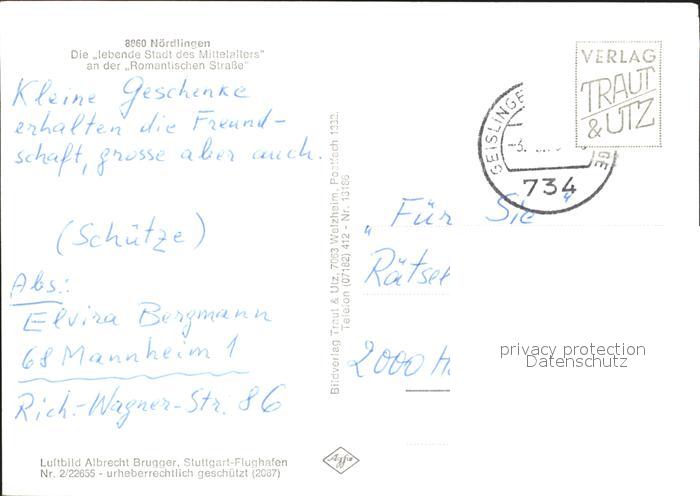 8860 Nördlingen
Die „lebende Stadt des Mittelalters"
an der „Romantischen Straße"
Kleine Geschenke
erhalten die Freund-
schaft, grosse aber auch.
(Schütze)
Abs.:
Elvira Bergmann
68 Mannheim 1
Rich.-Wagner-Str. 86
Luftbild Albrecht Brugger, Stuttgart-Flughafen
Nr. 2/22655 - urheberrechtlich geschützt (2087)
Bildverlag Traut & Utz, 7063 Welzheim, Postfach 1332,
Telefon (07182) 412 - Nr. 13186
Agfa
VERLAG
TRAUT
& UTZ
GEISLINGE
GE
734
„Für Sie"
Rätsel
2000 H
privacy protection
Datenschutz